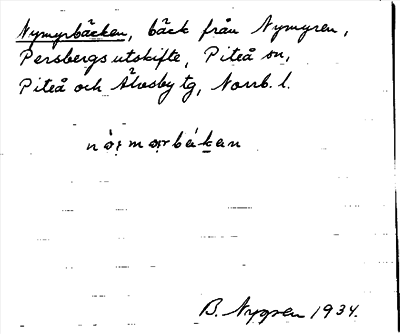 Nymyrbäcken, bäck från Nymyren,
Persbergs utskifte, Piteå sn,
Piteå och Älvsby tg, Norrb. l.
B. Nygren 1934.